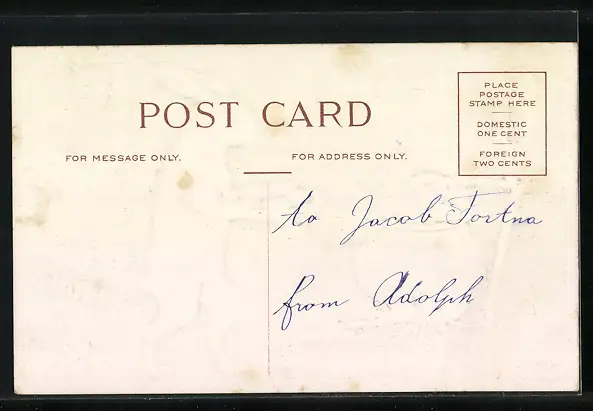 POST CARD
FOR MESSAGE ONLY.
FOR ADDRESS ONLY.
PLACE
POSTAGE
STAMP HERE
DOMESTIC
ONE CENT
FOREIGN
TWO CENTS
to Jacob Fortna
from Adolph